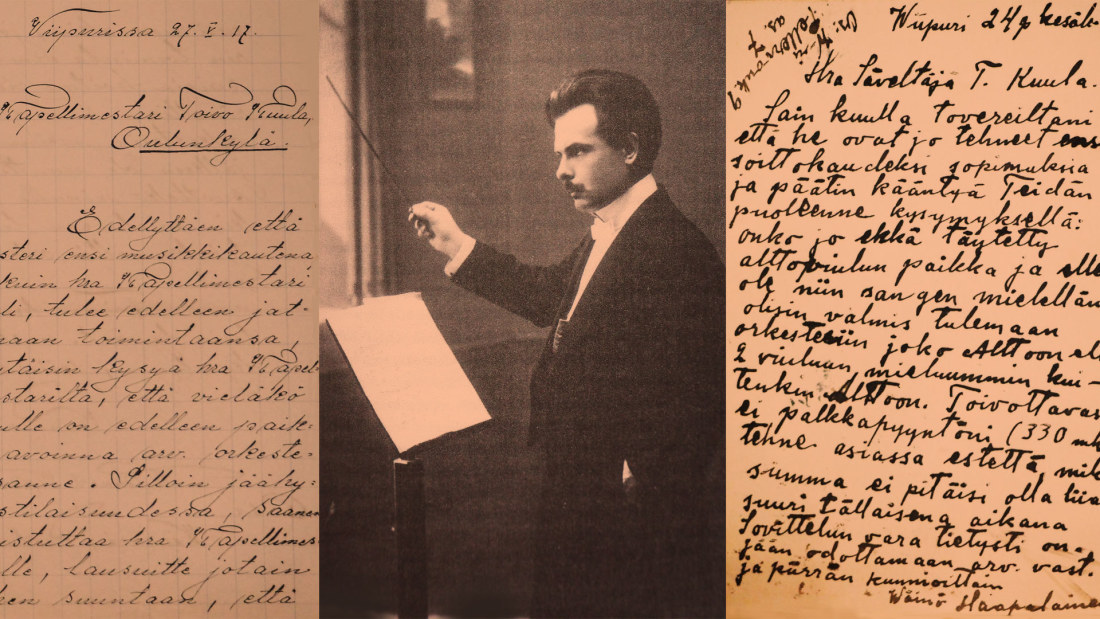 Viipurissa 27.V.17.
Kapellimestari Toivo Kuula,
Oulunkylä.
Edellyttäen että
steri ensi musikkikautena
kuin hra Kapellimestari
li, tulee edelleen jat-
maan toimintaansa,
täisin kysyä hra Kapel
starilta, että vieläkö
ulle on edelleen paik-
avoinna arv. orkeste-
sanne. Silloin jääky-
stilaisuudessa, saanen
istuttaa hra Kapellimes
lle, lausuitte jotain
hen suuntaan, että
Wiipuri 24 p kesäk
Hra Säveltäjä T. Kuula.
Sain kuulla tovereiltani
että he ovat jo tehneet ens
soittokaudeksi sopimuksia
ja päätin kääntyä Teidän
puoleenne kysymyksellä:
onko jo ehkä täytetty
alttoviulun paikka ja elle
ole niin sangen mielellän
olisin valmis tulemaan
orkesteriin joko Alttoon el
2 viuluun, mieluummin kui-
tenkin Alttoon. Toivottavas
ei palkkapyyntöni (330 mk
tehne asiassa estettä, mik
summa ei pitäisi olla liia
suuri tällaisena aikana
Sovittelun vara tietysti on.
Jään odottamaan arv. vast.
ja piirrän kunnioittain
Wäinö Haapalaine